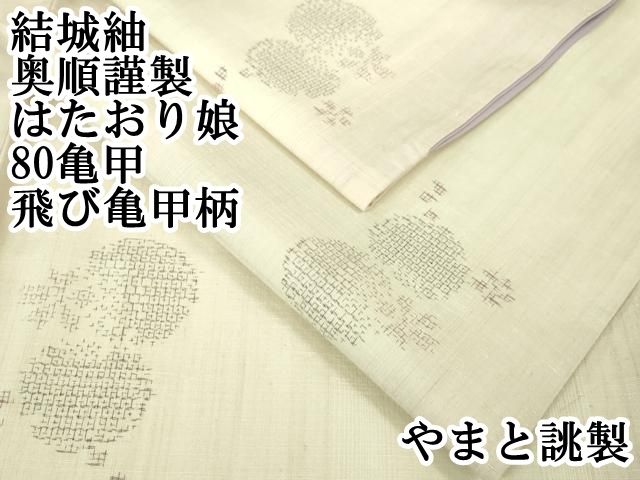 結城紬
奥順謹製
はたおり娘
80亀甲
飛び亀甲柄
やまと誂製